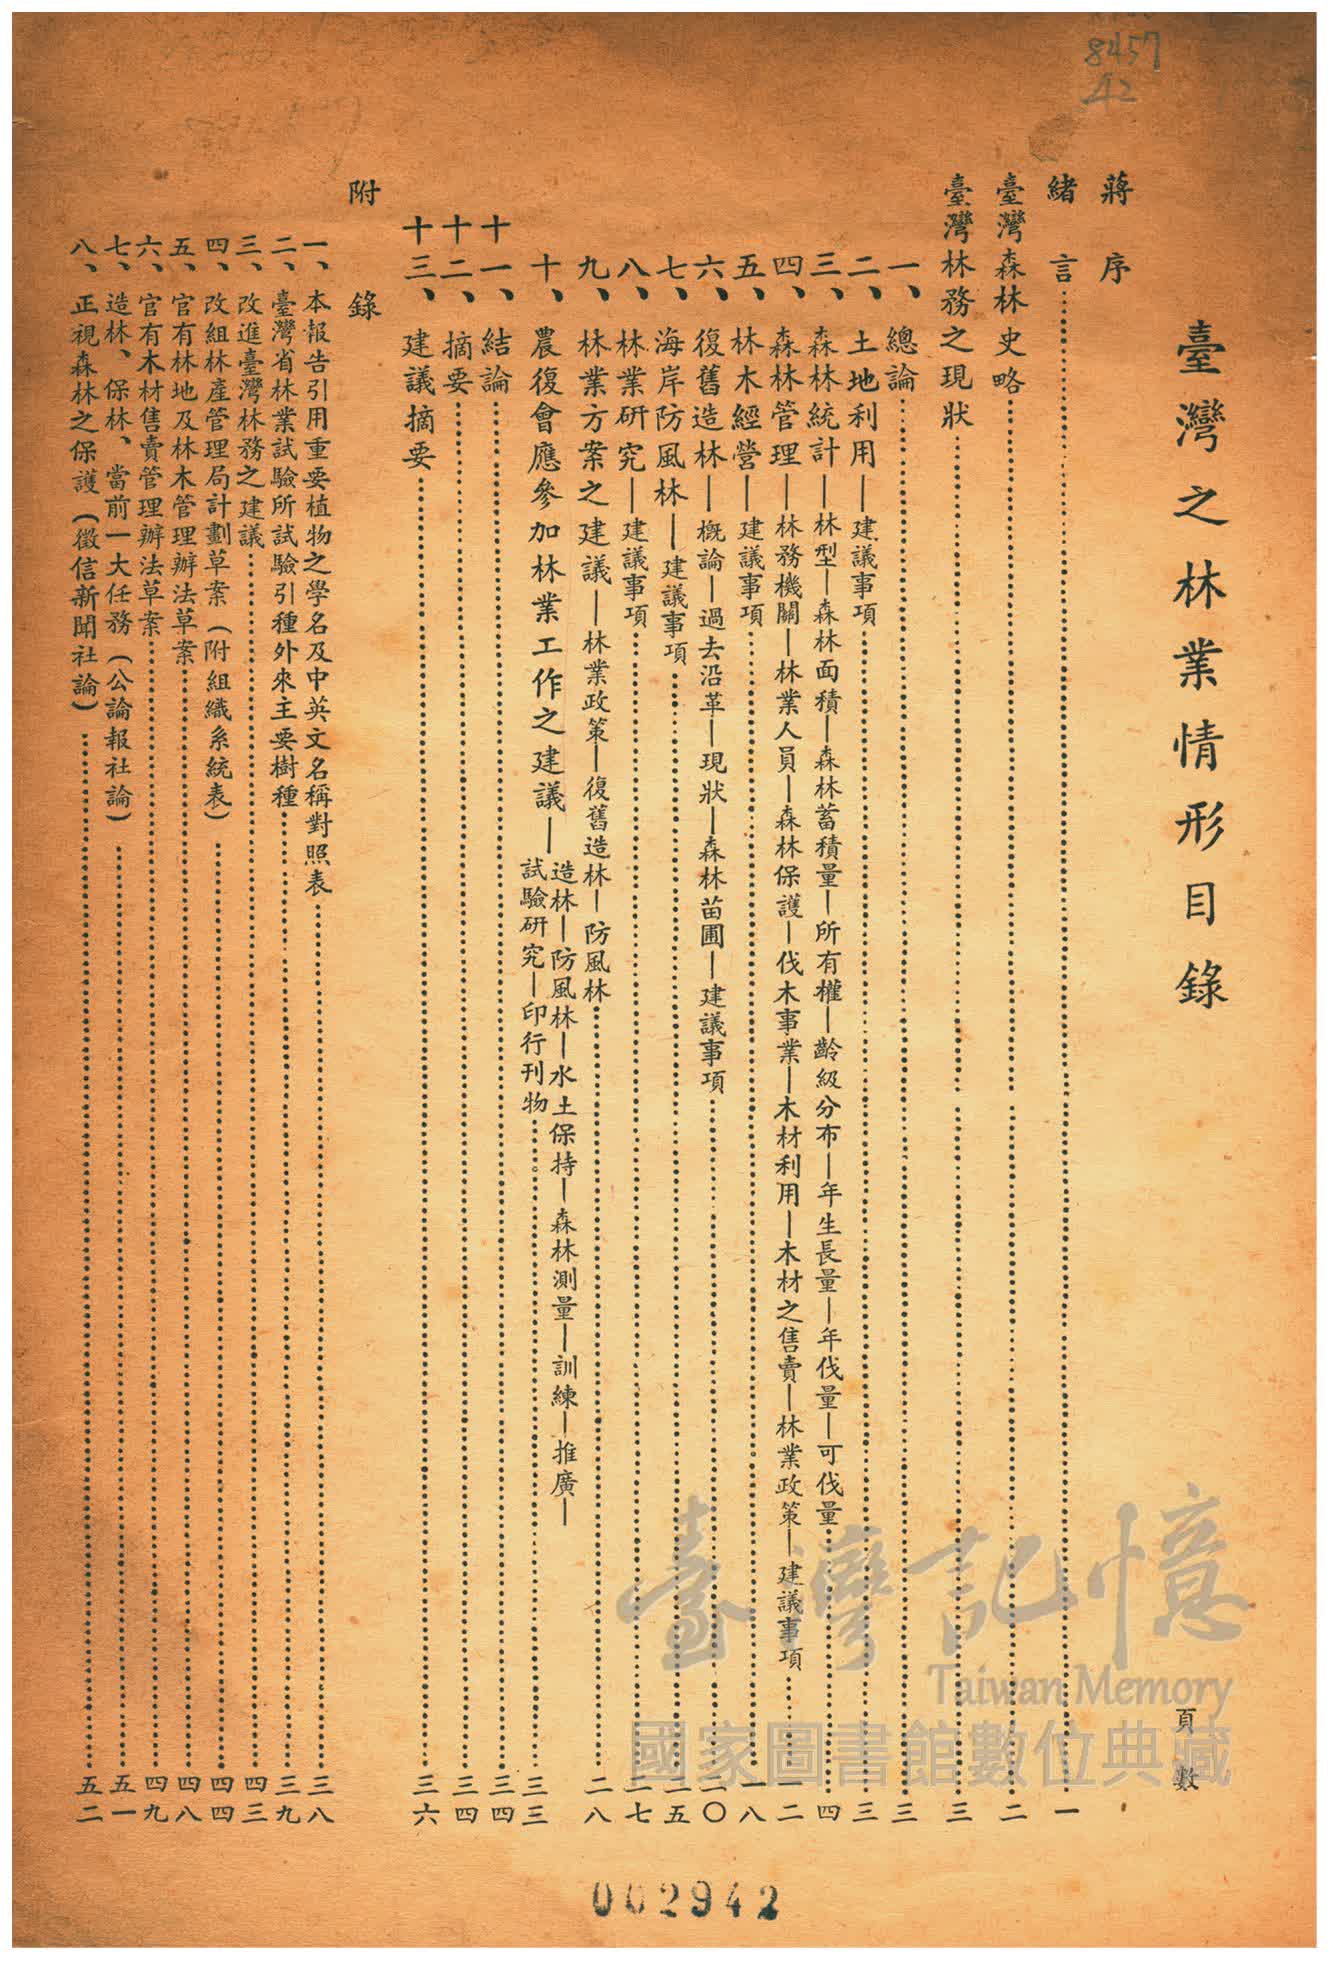 8457
42
臺灣之林業情形目錄
頁數
蔣序
緒言……一
臺灣森林史略……二
臺灣林務之現狀……三
一、總論……三
二、土地利用—建議事項……三
三、森林統計—林型—森林面積—森林蓄積量—所有權—齡級分布—年生長量—年伐量—可伐量……四
四、森林管理—林務機關—林業人員—森林保護—伐木事業—木材利用—木材之售賣—林業政策—建議事項……一二
五、林木經營—建議事項……一八
六、復舊造林—概論—過去沿革—現狀—森林苗圃—建議事項……二〇
七、海岸防風林—建議事項……二五
八、林業研究—建議事項……二七
九、林業方案之建議—林業政策—復舊造林—防風林……二八
十、農復會應參加林業工作之建議—造林—防風林—水土保持—森林測量—訓練—推廣—
試驗研究—印行刊物……三三
十一、結論……三四
十二、摘要……三四
十三、建議摘要……三六
附錄
一、本報告引用重要植物之學名及中英文名稱對照表……三八
二、臺灣省林業試驗所試驗引種外來主要樹種……三九
三、改進臺灣林務之建議……四三
四、改組林產管理局計劃草案（附組織系統表）……四四
五、官有林地及林木管理辦法草案……四八
六、官有木材售賣管理辦法草案……四九
七、造林、保林、當前一大任務（公論報社論）……五一
八、正視森林之保護（徵信新聞社論）……五二
臺灣記憶
Taiwan Memory
國家圖書館數位典藏
002942